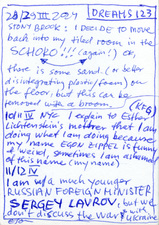 28/29 III 2024 DREAMS 123
STONY BROOK: I DECIDE TO MOVE
BACK INTO MY TILED ROOM IN THE
SCHOKO!!! (again!) OR,
there is some sand (or better
disintegrating plastic foam) on
the floor, but this can be
removed with a broom. (KFG)
10/11 IV NYC I explain to Esther
Lichtenstein's mother that I am
doing what I am doing because
my name EGON ZIPPEL is funny
& weird, sometimes I am ashamed
of this name (my name)
11/12 IV
I am at a much younger
RUSSIAN FOREIGN MINISTER
SERGEY LAVROV, but we
don't discuss the War with
Ukraine